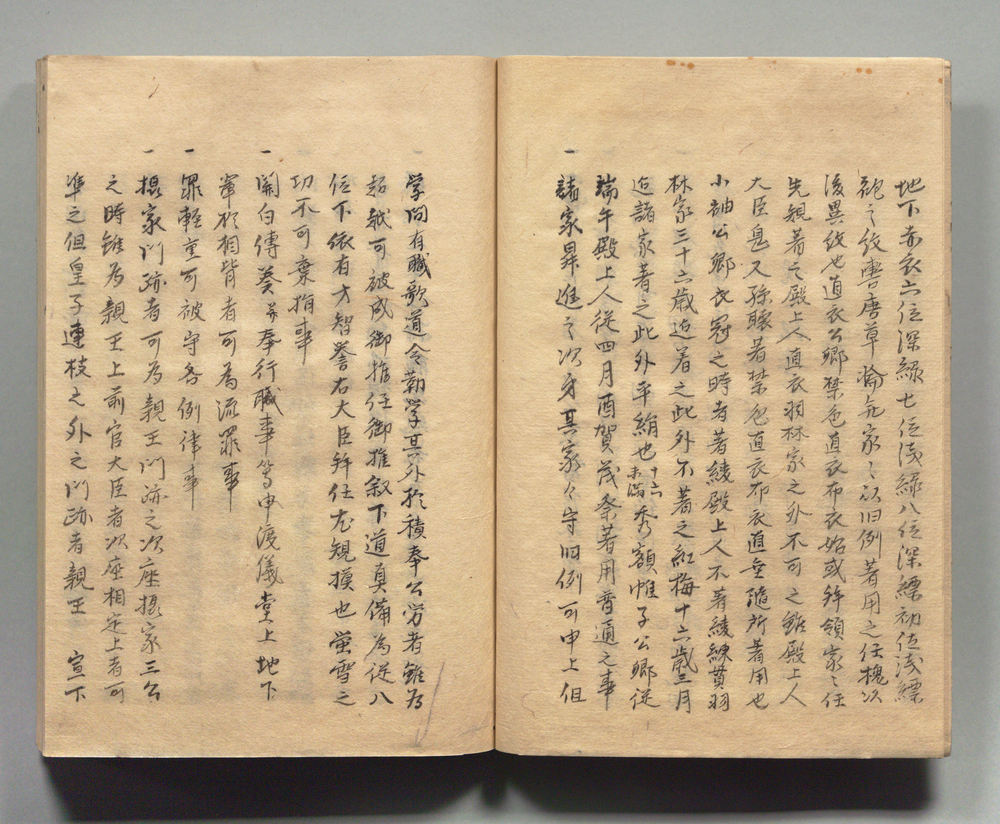 地下赤衣六位深緑七位浅緑八位深縹初位浅縹
袍之紋轡唐草輪無家々以旧例著用之任槐次
後異紋也直衣公卿禁色直衣布衣始或拝領家々任
先規著之殿上人直衣羽林家之外不可之雖殿上人
大臣息又孫聴著禁色直衣布衣直垂随所著用也
小袖公卿衣冠之時者著綾殿上人不著綾練貫羽
林家三十六歳迄着之此外不著之紅梅十六歳三月
迄諸家著之此外平絹也十六未満秀額帷子公卿従
端午殿上人従四月酉賀茂祭著用普通之事
一諸家昇進之次第其家々守旧例可申上但
学問有職歌道令勤学其外於積奉公労者雖為
超越可被成御推任御推叙下道真備為従八
位下依有才智誉右大臣拝任尤規摸也蛍雪之
功不可棄捐事
一関白傳奏并奉行職事等申渡儀堂上地下
輩於相背者可為流罪事
一罪軽重可被守各例律事
一摂家門跡者可為親王門跡之次座摂家三公
之時雖為親王上前官大臣者次座相定上者可
準之但皇子連枝之外之門跡者親王 宣下